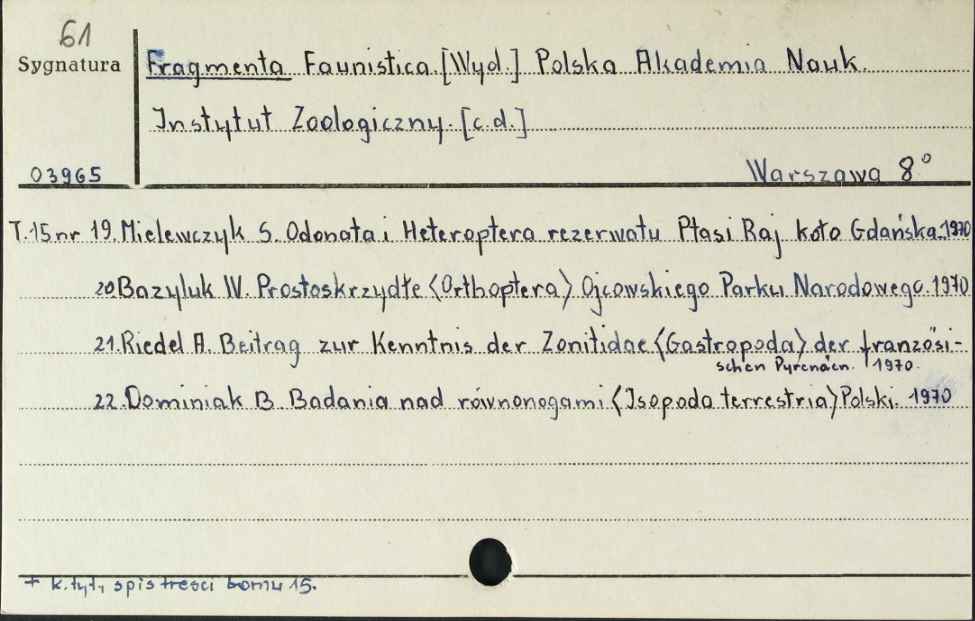 61
Sygnatura
Fragmenta Faunistica [Wyd.] Polska Akademia Nauk.
Instytut Zoologiczny. [c.d.]
03965
Warszawa 8°
T.15 nr 19. Mielewczyk S. Odonata i Heteroptera rezerwatu Ptasi Raj koło Gdańska. 1970
20 Bazyluk W. Prostoskrzydłe <Orthoptera> Ojcowskiego Parku Narodowego. 1970
21. Riedel A. Beitrag zur Kenntnis der Zonitidae <Gastropoda> der französi-
schen Pyrenäen. 1970.
22. Dominiak B. Badania nad równonogami <Isopoda terrestria> Polski. 1970
+ k. tyt., spis treści tomu 15.